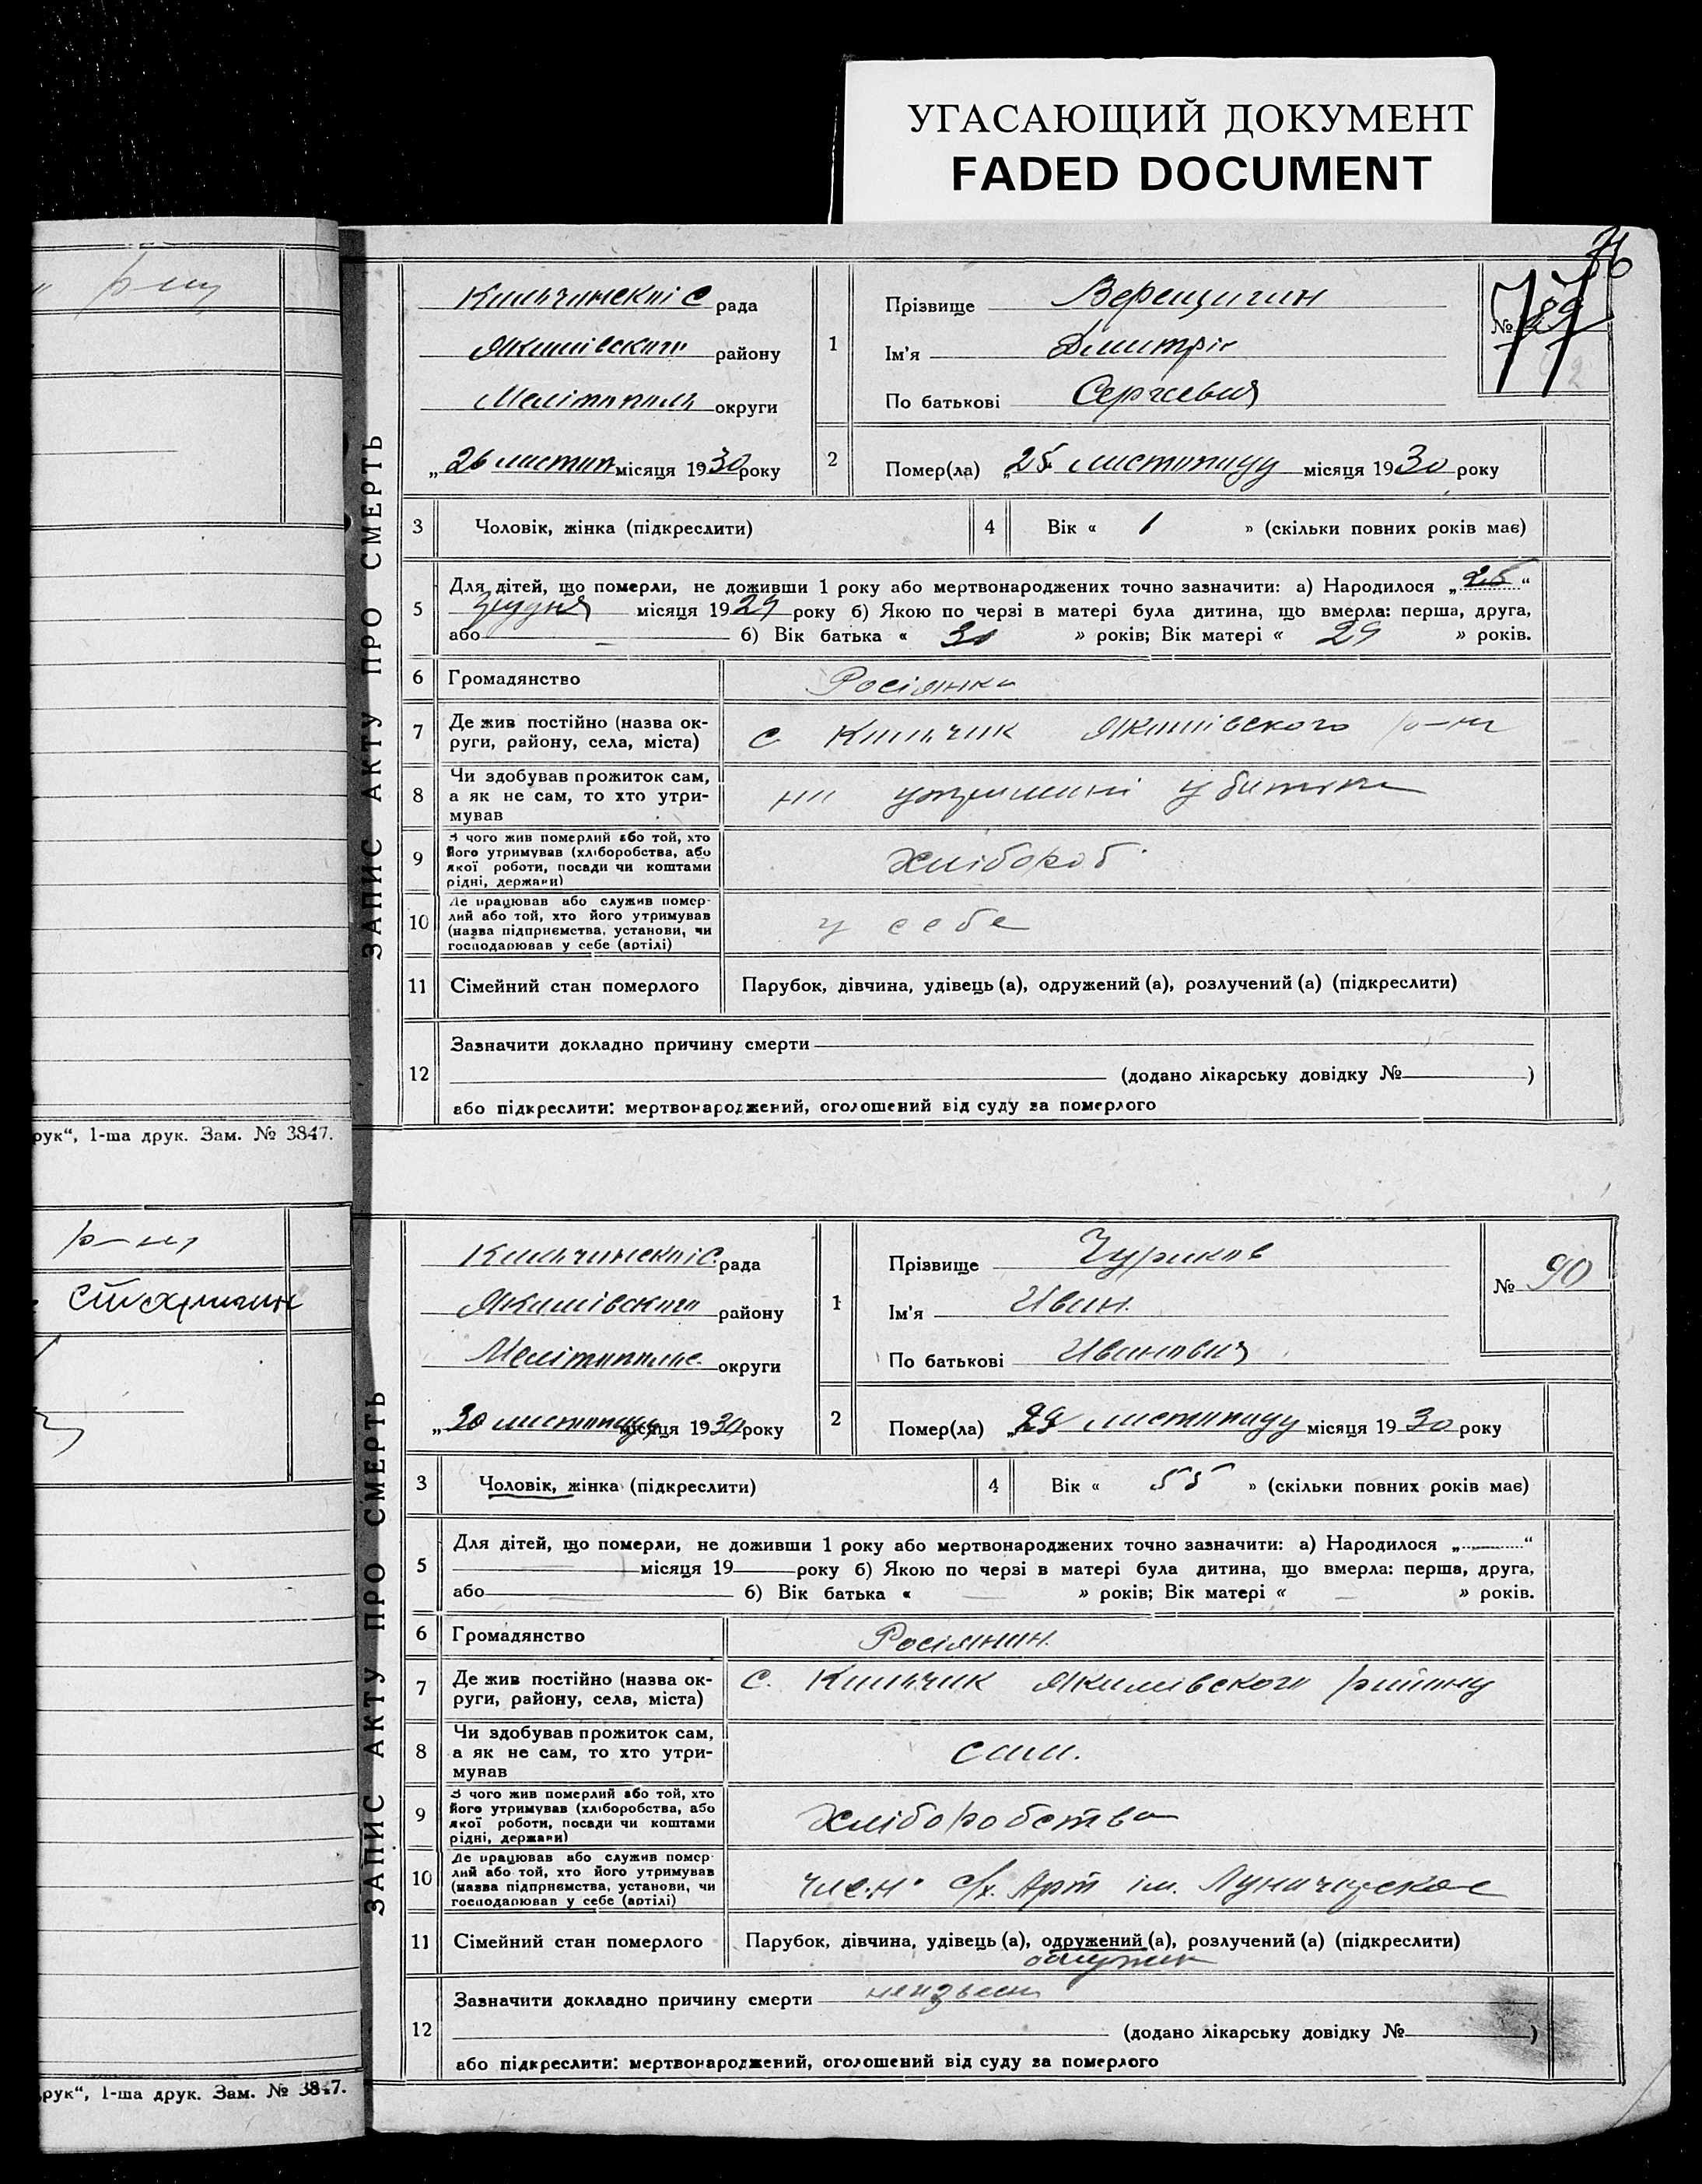 УГАСАЮЩИЙ ДОКУМЕНТ
FADED DOCUMENT
р-ну
рук“, 1-ша друк. Зам. № 3847.
р-ну
рук“, 1-ша друк. Зам. № 3847.
ЗАПИС АКТУ ПРО СМЕРТЬ
76
77
№ 89
Кильчинской С рада
Якимівского району
Мелітополь округи
„26 листоп місяця 1930 року
1
Прізвище Верещигин
Ім'я Дмитрій
По батькові Сергеевич
2
Помер(ла) „25 листопаду місяця 1930 року
3 Чоловік, жінка (підкреслити)
4 Вік « 1 » (скільки повних років має)
5 Для дітей, що померли, не доживши 1 року або мертвонароджених точно зазначити: а) Народилося „25“
Грудня місяця 1929 року б) Якою по черзі в матері була дитина, що вмерла: перша, друга,
або — б) Вік батька « 30 » років; Вік матері « 29 » років.
6 Громадянство Росіянка
7 Де жив постійно (назва ок-
руги, району, села, міста) с Кильчик Якимівского р-ну
8 Чи здобував прожиток сам,
а як не сам, то хто утри-
мував
на утриманні у батька
9 З чого жив померлий або той, хто
його утримував (хліборобства, або
якої роботи, посади чи коштами
рідні, держави)
Хлібороб
10 Де працював або служив помер-
лий або той, хто його утримував
(назва підприємства, установи, чи
господарював у себе (артілі)
у себе
11 Сімейний стан померлого Парубок, дівчина, удівець (а), одружений (а), розлучений (а) (підкреслити)
12 Зазначити докладно причину смерти
(додано лікарську довідку № )
або підкреслити: мертвонароджений, оголошений від суду за померлого
ЗАПИС АКТУ ПРО СМЕРТЬ
№ 90
Кильчинской С. рада
Якимівского району
Мелітопольс. округи
„30 листопаду місяця 1930 року
1
Прізвище Чуриков
Ім'я Иван.
По батькові Иванович
2
Помер(ла) „29 листопаду місяця 1930 року
3 Чоловік, жінка (підкреслити)
4 Вік « 55 » (скільки повних років має)
5 Для дітей, що померли, не доживши 1 року або мертвонароджених точно зазначити: а) Народилося „ “
місяця 19 року б) Якою по черзі в матері була дитина, що вмерла: перша, друга,
або — б) Вік батька « — » років; Вік матері « — » років.
6 Громадянство Росіянин.
7 Де жив постійно (назва ок-
руги, району, села, міста) С. Кильчик Якимівского району
8 Чи здобував прожиток сам,
а як не сам, то хто утри-
мував
сам.
9 З чого жив померлий або той, хто
його утримував (хліборобства, або
якої роботи, посади чи коштами
рідні, держави)
Хліборобство
10 Де працював або служив помер-
лий або той, хто його утримував
(назва підприємства, установи, чи
господарював у себе (артілі)
член с/х. Арт ім. Луначарское
11 Сімейний стан померлого Парубок, дівчина, удівець (а), одружений (а), розлучений (а) (підкреслити)
12 Зазначити докладно причину смерти неизвесн
(додано лікарську довідку № )
або підкреслити: мертвонароджений, оголошений від суду за померлого